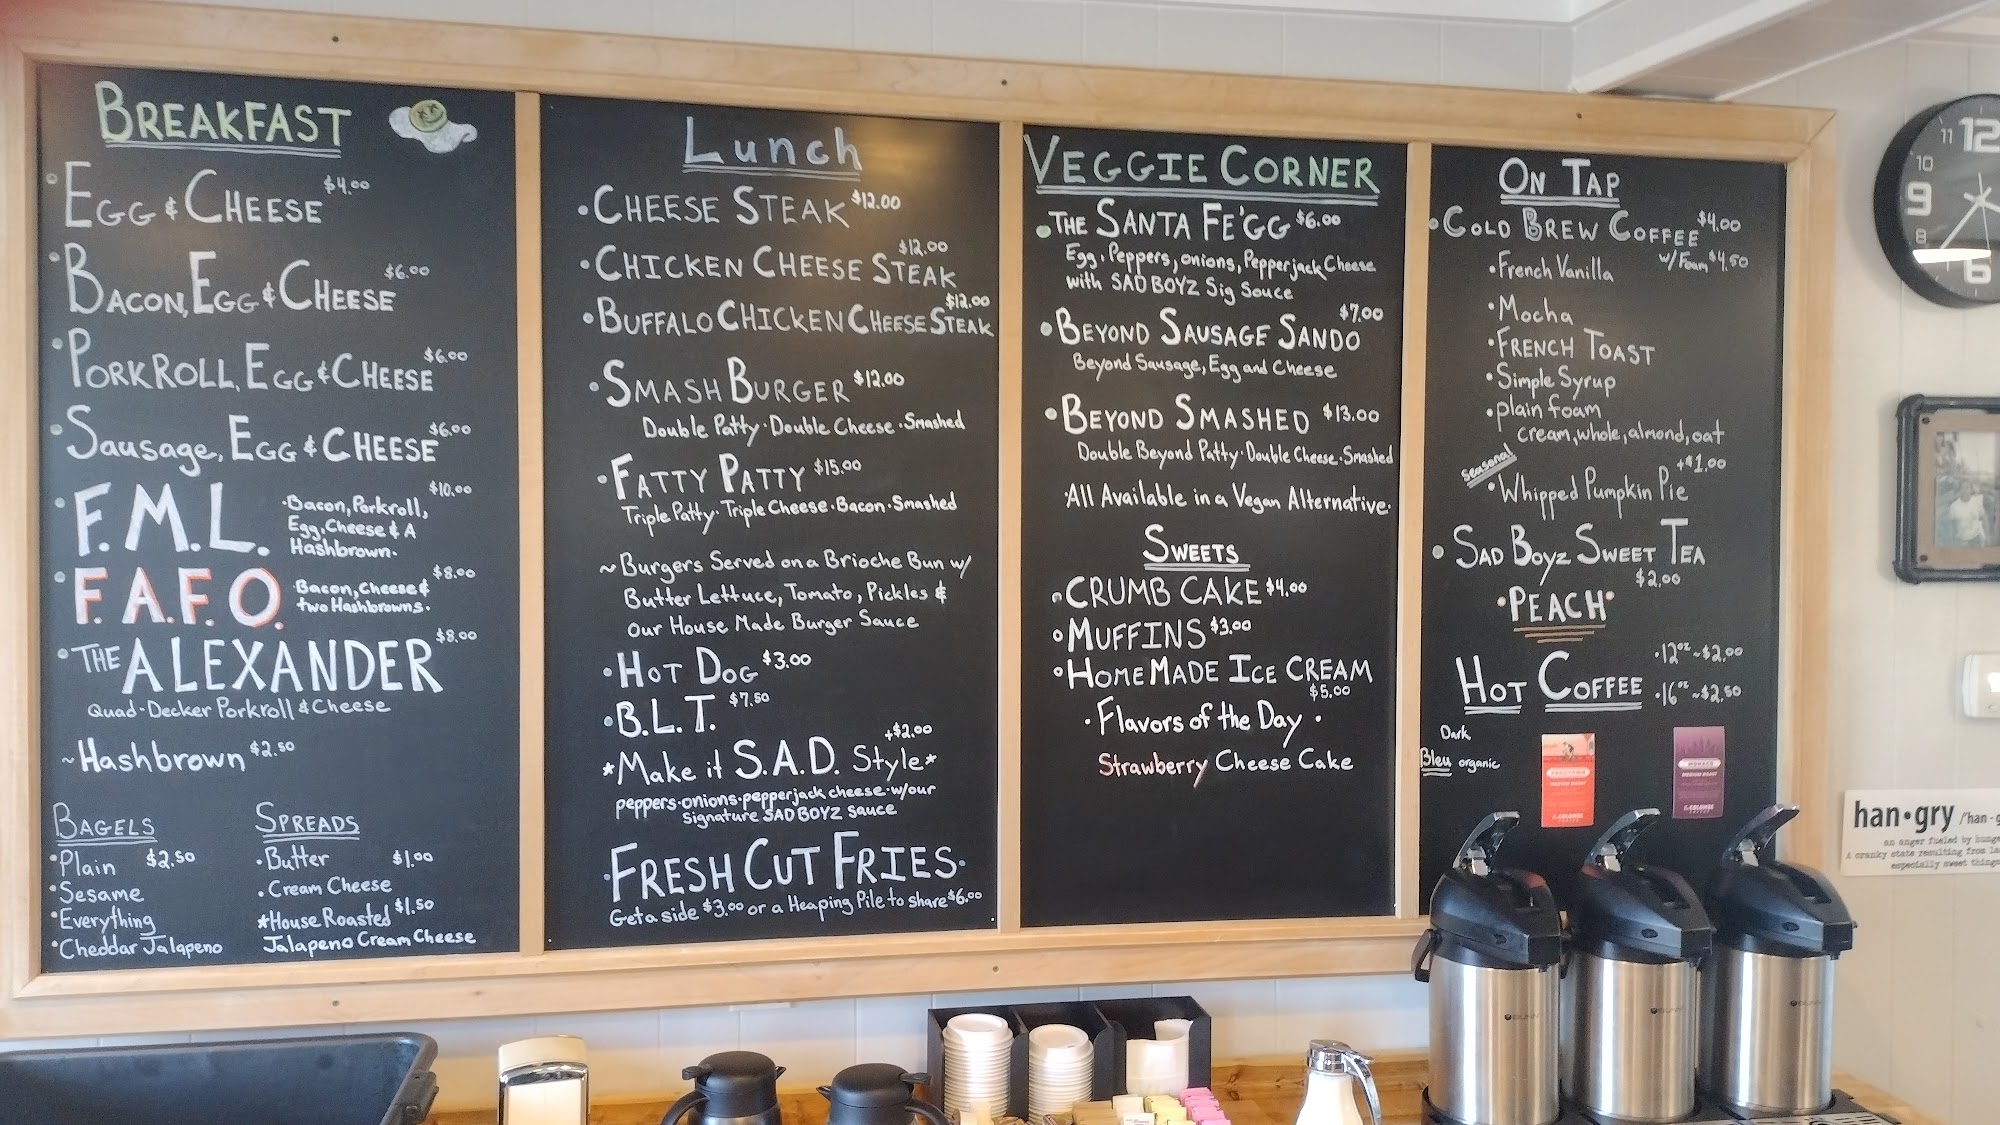 BREAKFAST
EGG & CHEESE $4.00
BACON, EGG & CHEESE $6.00
PORKROLL, EGG & CHEESE $6.00
Sausage, EGG & CHEESE $6.00
F.M.L. $10.00
·Bacon, Porkroll,
Egg, Cheese & A
Hashbrown.
F.A.F.O. $8.00
·Bacon, Cheese &
two Hashbrowns.
THE ALEXANDER $8.00
Quad-Decker Porkroll & Cheese
~Hashbrown $2.50
BAGELS
·Plain $2.50
·Sesame
·Everything
·Cheddar Jalapeno
SPREADS
·Butter $1.00
·Cream Cheese
*House Roasted $1.50
Jalapeno Cream Cheese
Lunch
·CHEESE STEAK $12.00
·CHICKEN CHEESE STEAK $12.00
·BUFFALO CHICKEN CHEESE STEAK $12.00
·SMASH BURGER $12.00
Double Patty·Double Cheese·Smashed
·FATTY PATTY $15.00
Triple Patty·Triple Cheese·Bacon·Smashed
~Burgers Served on a Brioche Bun w/
Butter Lettuce, Tomato, Pickles &
Our House Made Burger Sauce
·HOT DOG $3.00
·B.L.T. $7.50
*Make it S.A.D. Style* +$2.00
peppers·onions·pepperjack cheese·w/our
Signature SAD BOYZ sauce
·FRESH CUT FRIES·
Get a side $3.00 or a Heaping Pile to share $6.00
VEGGIE CORNER
·THE SANTA FE'GG $6.00
Egg, Peppers, onions, Pepperjack Cheese
with SAD BOYZ Sig Souce
·BEYOND SAUSAGE SANDO $7.00
Beyond Sausage, Egg and Cheese
·BEYOND SMASHED $13.00
Double Beyond Patty·Double Cheese·Smashed
·All Available in a Vegan Alternative·
SWEETS
·CRUMB CAKE $4.00
·MUFFINS $3.00
·HOMEMADE ICE CREAM
$5.00
·Flavors of the Day·
Strawberry Cheese Cake
ON TAP
·COLD BREW COFFEE $4.00
w/Foam $4.50
·French Vanilla
·Mocha
·FRENCH TOAST
·Simple Syrup
·plain foam
cream, whole, almond, oat
Seasonal +$1.00
·Whipped Pumpkin Pie
·SAD BOYZ SWEET TEA
$2.00
·PEACH·
HOT COFFEE
·12oz ~$2.00
·16oz ~$2.50
Dark
Bleu organic
MONACO
MEDIUM ROAST
LA COLOMBE
12
11
10
9
8
6
han•gry /'han-g
an anger fueled by hunge
A cranky state resulting from la
especially sweet things
BUNN
BUNN
BUNN